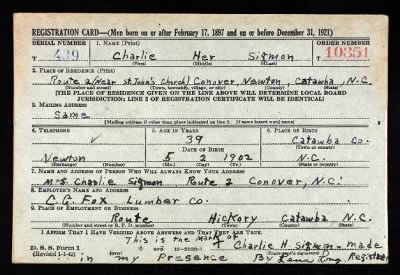 REGISTRATION CARD—(Men born on or after February 17, 1897 and on or before December 31, 1921)
SERIAL NUMBER 1. NAME (Print) ORDER NUMBER
T 439 Charlie Her Sigmon T 10351
(First) (Middle) (Last)
2. PLACE OF RESIDENCE (Print)
Route 2 (Near St. John's Church) Conover, Newton, Catawba, N.C.
(Number and street) (Town, township, village, or city) (County) (State)
[THE PLACE OF RESIDENCE GIVEN ON THE LINE ABOVE WILL DETERMINE LOCAL BOARD
JURISDICTION; LINE 2 OF REGISTRATION CERTIFICATE WILL BE IDENTICAL]
3. MAILING ADDRESS
Same
[Mailing address if other than place indicated on line 2. If same insert word same]
4. TELEPHONE 5. AGE IN YEARS 6. PLACE OF BIRTH
39 Catawba Co.
DATE OF BIRTH (Town or county)
Newton 5 2 1902 N.C.
(Exchange) (Number) (Mo.) (Day) (Yr.) (State or country)
7. NAME AND ADDRESS OF PERSON WHO WILL ALWAYS KNOW YOUR ADDRESS
Mrs Charlie Sigmon Route 2 Conover, N.C.
8. EMPLOYER'S NAME AND ADDRESS
C.G. Fox Lumber Co.
9. PLACE OF EMPLOYMENT OR BUSINESS
Route Hickory Catawba N.C.
(Number and street or R. F. D. number) (Town) (County) (State)
I AFFIRM THAT I HAVE VERIFIED ABOVE ANSWERS AND THAT THEY ARE TRUE.
This is the mark of Charlie H. Sigmon made
D. S. S. Form 1
(Revised 1-1-42) in my presence By Registrar